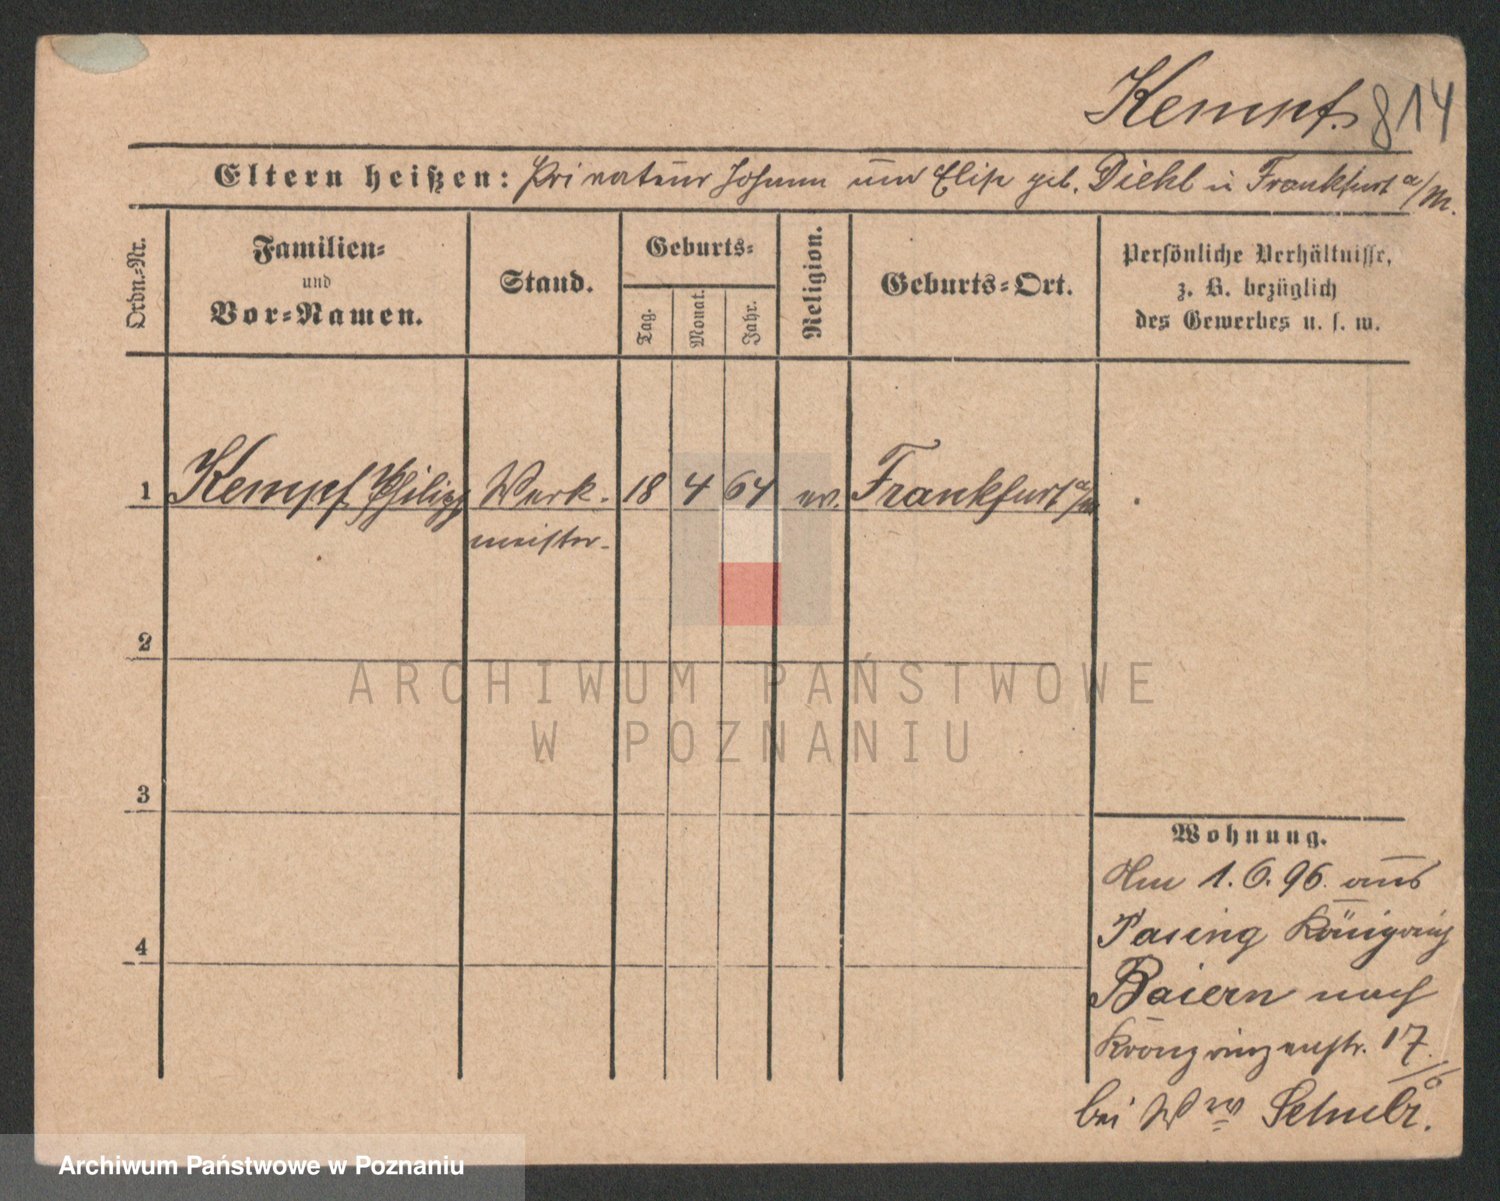 Kempf. 814
Eltern heißen: Privateur Johann und Elise geb. Diehl in Frankfurt a/M.
Ordn.-Nr.
Familien-
und
Vor-Namen.
Stand.
Geburts-
Tag.
Monat.
Jahr.
Religion.
Geburts-Ort.
Persönliche Verhältnisse,
z. B. bezüglich
des Gewerbes u. s. w.
1 Kempf Philipp Werk- 18 4 64 ev. Frankfurt a/M.
meister.
2
ARCHIWUM PAŃSTWOWE
W POZNANIU
3
4
Wohnung.
Am 1.6.96. aus
Pasing Königreich
Baiern nach
Kronprinzenstr. 17.
bei Wwe Schulz.
Archiwum Państwowe w Poznaniu